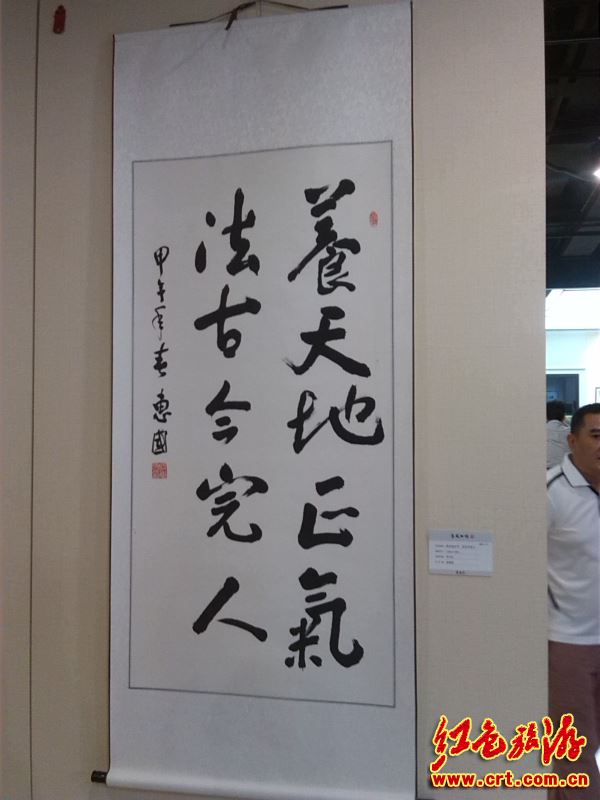 養天地正氣
法古今完人
甲午年春惠國
红色旅游
www.crt.com.cn